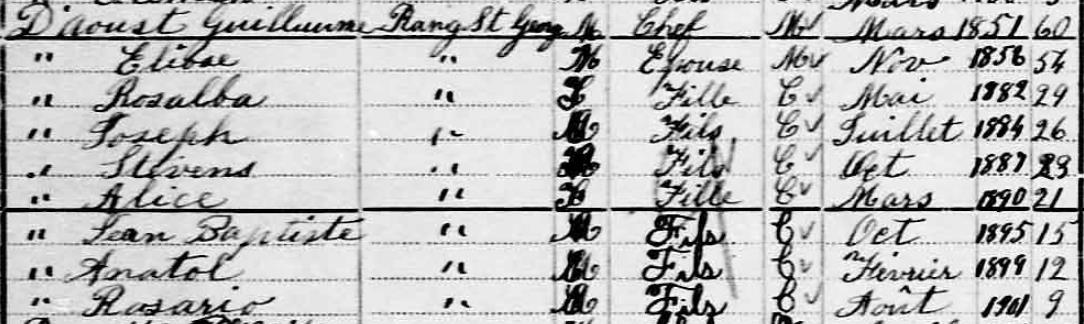 D'aoust Guillaume Rang St Georg M Chef M Mars 1851 60
" Elibse " M Epouse M Nov 1856 54
" Rosalba " F Fille C Mai 1882 29
" Joseph " M Fils C Juillet 1884 26
" Stivens " M Fils C Oct 1887 23
" Alice " F Fille C Mars 1890 21
" Jean Baptiste " M Fils C Oct 1895 15
" Anatol " M Fils C Février 1899 12
" Rosario " M Fils C Août 1901 9